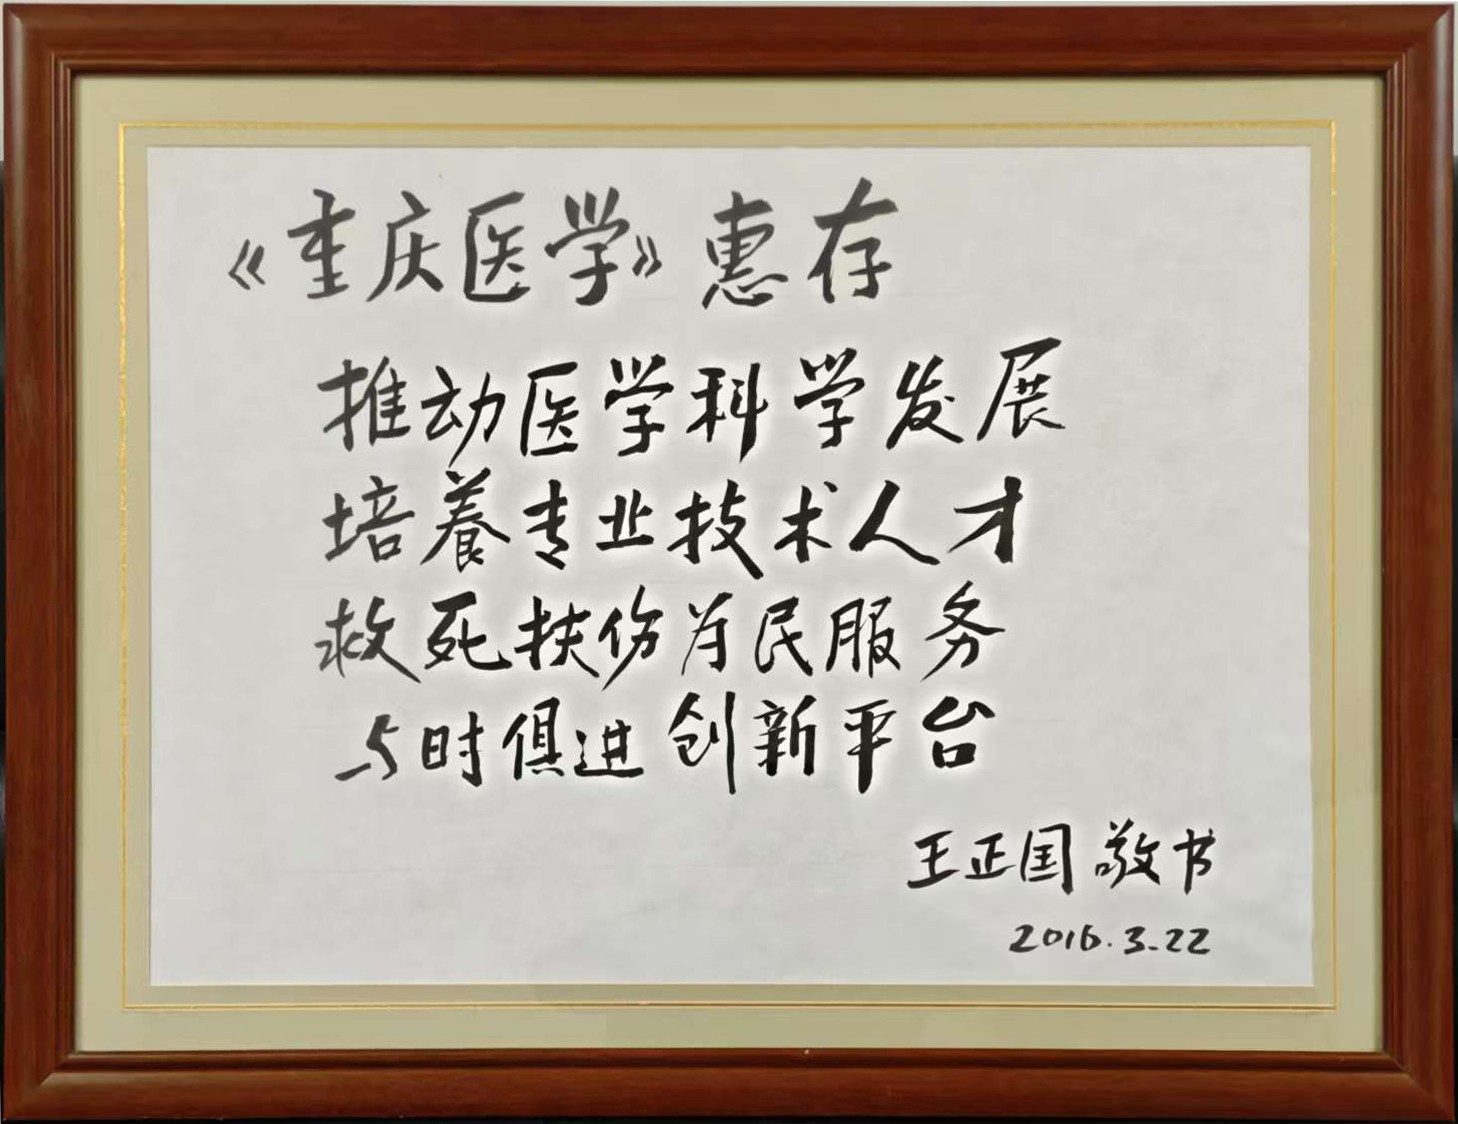 《重庆医学》惠存
推动医学科学发展
培养专业技术人才
救死扶伤为民服务
与时俱进创新平台
王正国 敬书
2016.3.22